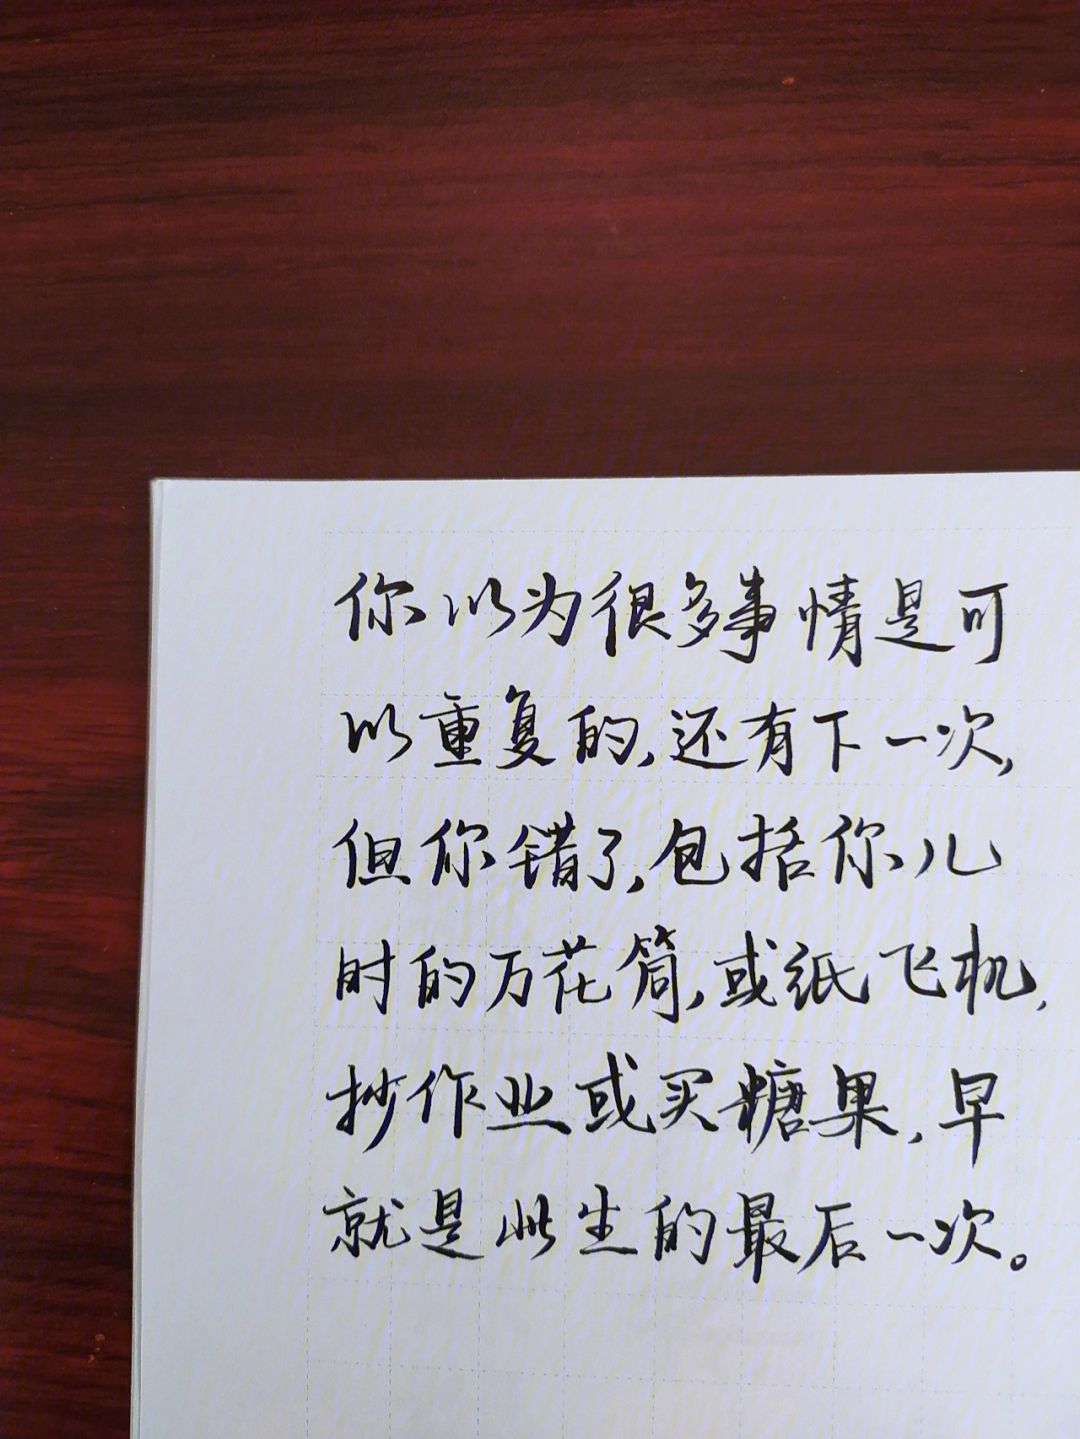 你以为很多事情是可
以重复的,还有下一次,
但你错了,包括你儿
时的万花筒,或纸飞机,
抄作业或买糖果,早
就是此生的最后一次。